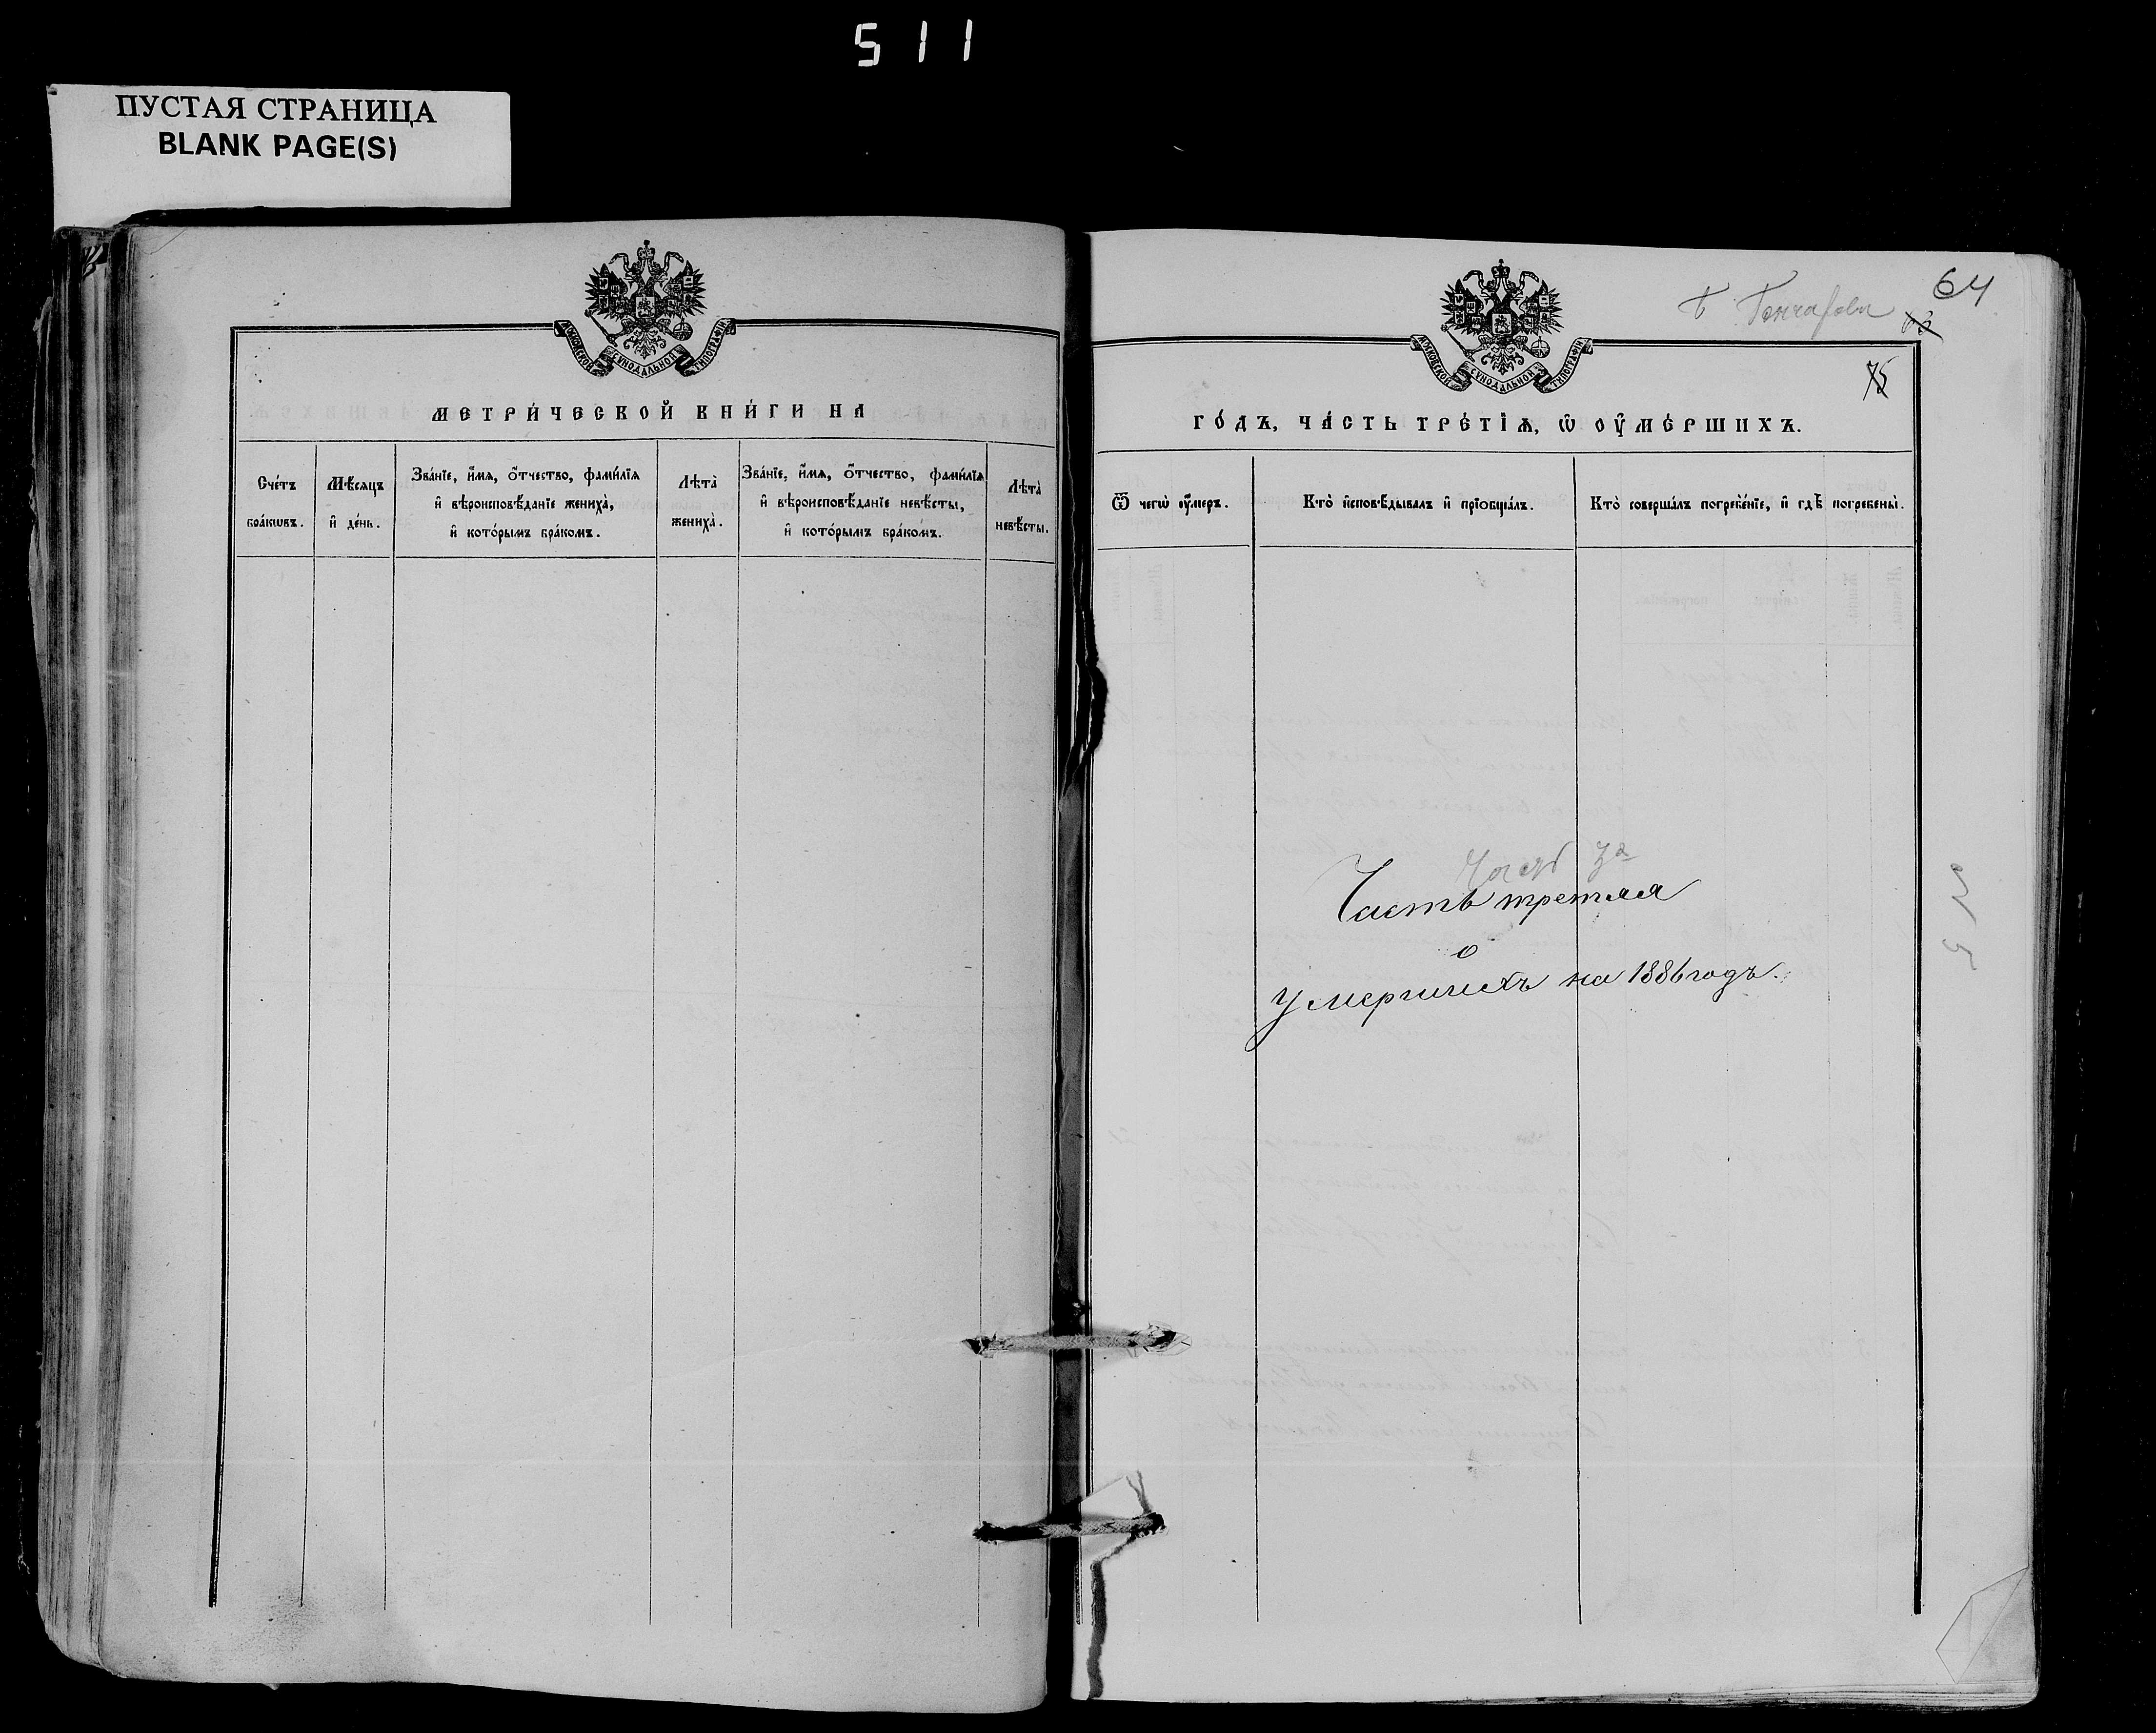 511
ПУСТАЯ СТРАНИЦА
BLANK PAGE(S)
МОСКОВСКОЙ СѴНОДАЛЬНОЙ ТИПОГРАФІИ
МЕТРИ́ЧЕСКОЙ КНИ́ГИ НА
Сче́тъ бра́кѡвъ.
Мѣ́сяцъ и҆ де́нь.
Зва́нїе, и҆́мѧ, ѻ҆́тчество, фами́лїѧ
и҆ вѣроисповѣ́данїе жениха̀,
и҆ кото́рымъ бра́комъ.
Лѣта̀ жениха̀.
Зва́нїе, и҆́мѧ, ѻ҆́тчество, фами́лїѧ
и҆ вѣроисповѣ́данїе невѣ́сты,
и҆ кото́рымъ бра́комъ.
Лѣта̀ невѣ́сты.
64
Гончарова
75
МОСКОВСКОЙ СѴНОДАЛЬНОЙ ТИПОГРАФІИ
ГО́ДЪ, ЧА́СТЬ ТРЕ́ТЇѦ, Ѡ҆ ОУ҆МЕ́РШИХЪ.
Ѿ чегѡ̀ оу҆́меръ.
Кто̀ и҆сповѣ́дывалъ и҆ прїобща́лъ.
Кто̀ соверша́лъ погребе́нїе, и҆ гдѣ̀ погребены̀.
Часть 3я
Часть третяя
о
умершихъ на 1886 годъ.